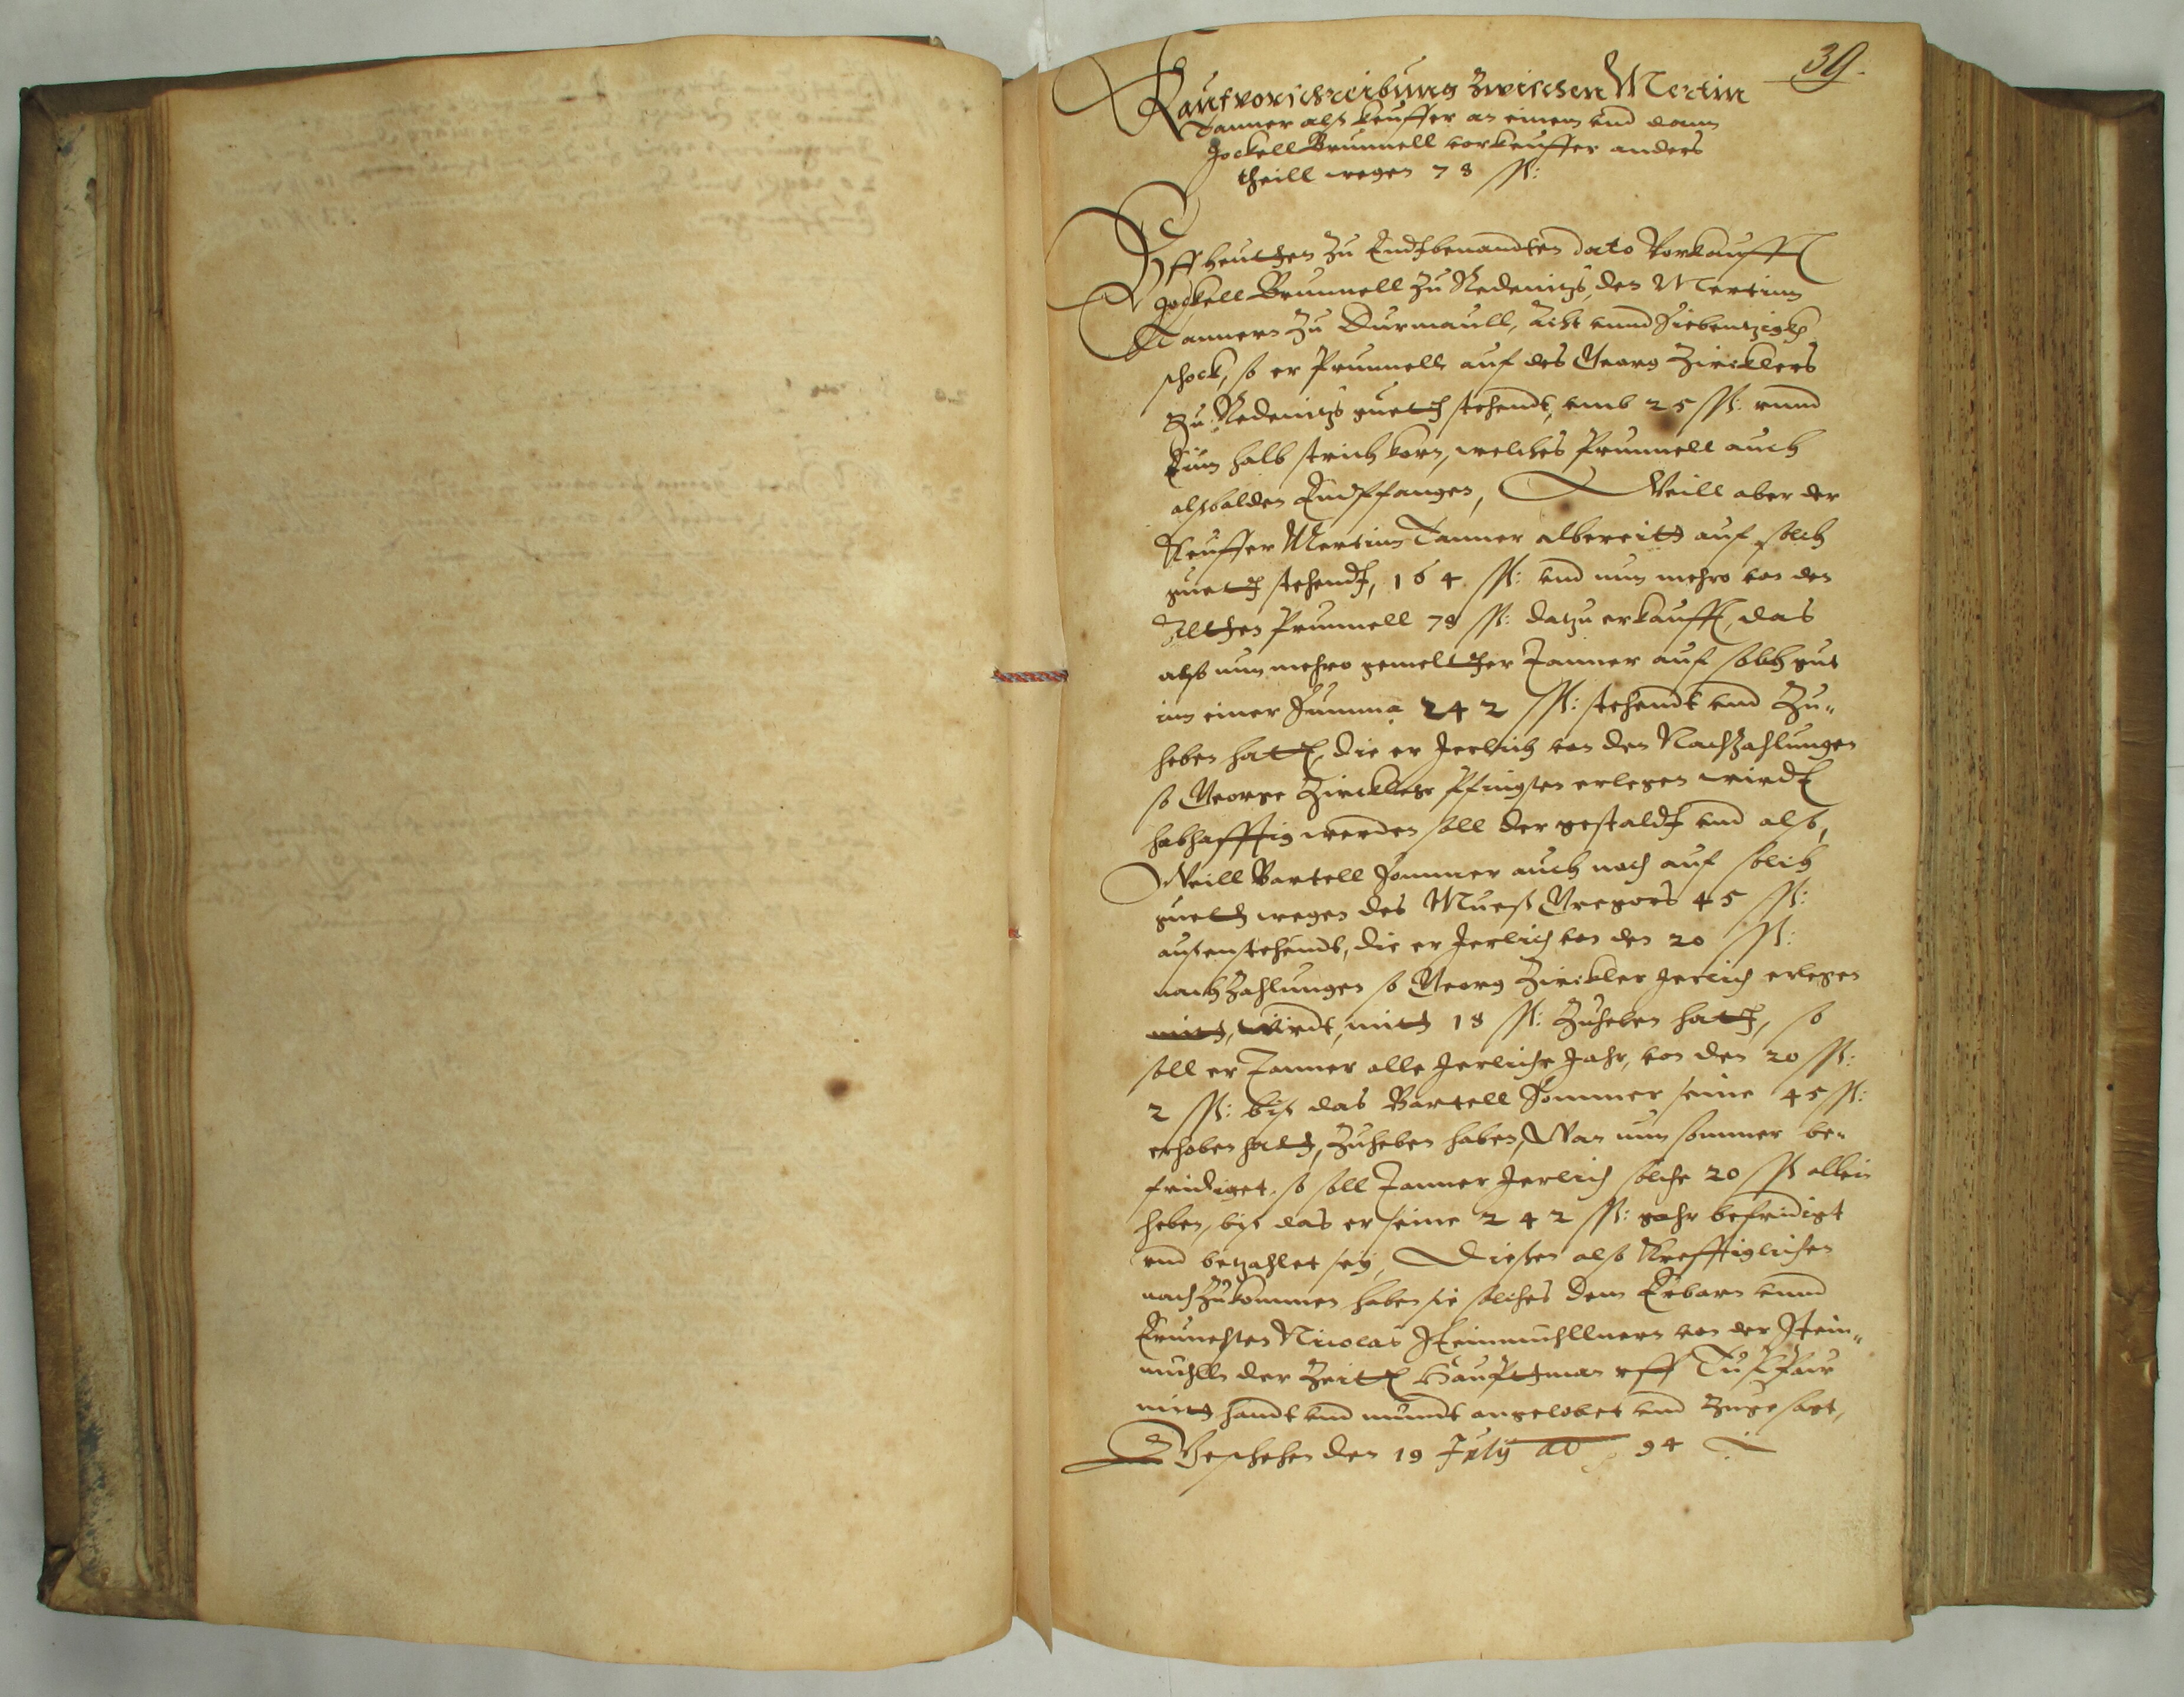 39.
Kaufvorschreibung zwischen Mertin
Tanner alß keuffer an einem vnd dann
Jockell Brunnell vorkeuffer anders
theill wegen 78 ßß:
Vff heuthen zu Endtbenandten dato Vorkaufft
Jockell Brunnell zu Redenitz, den Mertinn
Tannern zu Durmaull, Acht vnnd Siebentzigk
schock, so er Prunnell auf des Georg Zircklers
zu Redenitz gueth stehendt, vmb 25 ßß: vnnd
Ein halb strich korn, welches Prunnell auch
alßbalden Endtpfangen, Weill aber der
Keuffer Mertinn Tanner albereith auf solch
gueth stehendt, 164 ßß: vnd nun mehro von den
Alten Prunnell 78 ßß: datzu erkaufft, das
also nun mehro gemelther Tanner auf solch gut
inn einer Summa 242 ßß: stehendt vnd Zu„
heben hatt, die er Jerlich von den Nachzahlungen
so George Zirckler Pfingsten erlegen wirdt
habhafftig werden soll der gestaldt vnd also,
Weill Bartell Sommer auch noch auf solch
gueth wegen des Mueß Gregors 45 ßß:
außenstehendt, die er Jerlich von den 20 ßß:
nachzahlungen so Georg Zirckler Jerlich erlegen
mith, wirdt, mith 18 ßß: zuheben hath, so
soll er Tanner alle Jerliche Jahr, von den 20 ßß:
2 ßß: biß das Bartell Sommer seine 45 ßß:
erhoben hath, zuheben haben, Wan nun sommer be-
fridiget, so soll Tanner Jerlich solche 20 ßß allein
heben, biß das er seine 242 ßß: gahr befridigt
vnd betzahlet sey, Diesen also Krefftiglichen
nachzukommen haben sie solches dem Erbarn vnnd
Ernuehsten Nicolas Steinmuhllnern von der Stein„
muhlln der Zeitt Hauptman vff
mith handt vnd mundt angelobet vnd Zugesagt,
Geschehen den 19 July ao 94